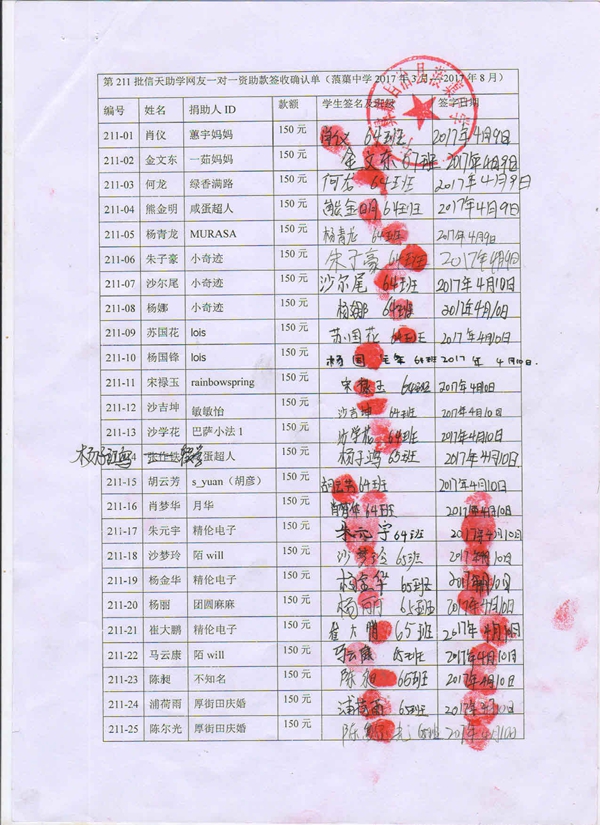 第 211 批信天助学网友一对一资助款签收确认单（菠萝中学 2017 年 3 月—2017 年 8 月）
编号 姓名 捐助人 ID 款额 学生签名及班级 签字日期
211-01 肖仪 蕙宇妈妈 150 元 肖仪 64班 2017年4月9日
211-02 金文东 一茹妈妈 150 元 金文东 67班 2017年4月9日
211-03 何龙 绿香满路 150 元 何龙 64班 2017年4月9日
211-04 熊金明 咸蛋超人 150 元 熊金明 64班 2017年4月9日
211-05 杨青龙 MURASA 150 元 杨青龙 64班 2017年4月9日
211-06 朱子豪 小奇迹 150 元 朱子豪 64班 2017年4月9日
211-07 沙尔尾 小奇迹 150 元 沙尔尾 64班 2017年4月10日
211-08 杨娜 小奇迹 150 元 杨娜 64班 2017年4月10日
211-09 苏国花 lois 150 元 苏国花 64班 2017年4月10日
211-10 杨国锋 lois 150 元 杨国锋 64班 2017年4月10日.
211-11 宋禄玉 rainbowspring 150 元 宋禄玉 64班 2017年4月10日
211-12 沙吉坤 敏敏怡 150 元 沙吉坤 64班 2017年4月10日
211-13 沙学花 巴萨小法 1 150 元 沙学花 64班 2017年4月10日
蛋超人 150 元 杨子鸿 65班 2017年4月10日
211-15 胡云芳 s_yuan（胡彦） 150 元 胡云芳 64班 2017年4月10日
211-16 肖梦华 月华 150 元 肖梦华 64班 2017年4月10日
211-17 朱元宇 精伦电子 150 元 朱元宇 64班 2017年4月10日
211-18 沙梦玲 陌 will 150 元 沙梦玲 65班 2017年4月10日
211-19 杨金华 精伦电子 150 元 杨金华 65班 2017年4月10日
211-20 杨丽 团圆麻麻 150 元 杨丽 65班 2017年4月10日
211-21 崔大鹏 精伦电子 150 元 崔大鹏 65班 2017年4月10日
211-22 马云康 陌 will 150 元 马云康 65班 2017年4月10日
211-23 陈昶 不知名 150 元 陈昶 65班 2017年4月10日
211-24 浦荷雨 厚街田庆婚 150 元 浦荷雨 65班 2017年4月10日
211-25 陈尔光 厚街田庆婚 150 元 陈尔光 65班 2017年4月10日